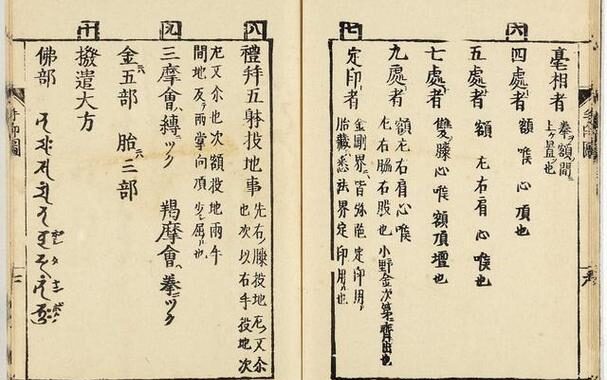 六
毫相者 拳額間上ヶ置也
四處者 額 喉 心 頂 也
五處者 額 左右肩 心 喉 也
七處者 雙膝心喉額頂壇也
七
九處者 額左右肩心喉
左右脇右股也 小野金次第
定印者 金剛界皆弥陀定印用
胎藏悉法界定印用也
手印圖
八
禮拜五躰投地事 先右膝投地左又尒
也次以右手投地次
左又尒也次額投地兩手
間地及兩掌向頂少屈也
九
三摩會縛ツク 羯摩會拳ツク
金五部 胎三部
十
撥遣大方
佛部
手印圖